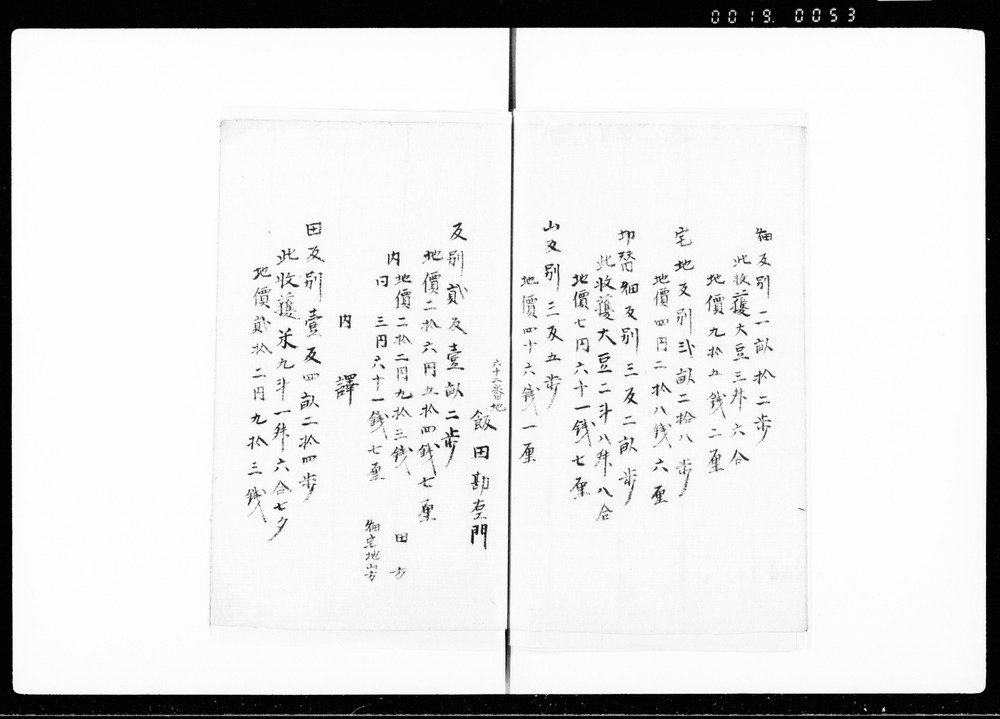 0019 0053
畑反別二畝拾二歩
此收獲大豆三舛六合
地價九拾五銭二厘
宅地反別弐畝二拾八歩
地價四円二拾八銭六厘
切替畑反別三反二畝歩
此收獲大豆二斗八舛八合
地價七円六十一銭七厘
山反別三反五歩
地價四十六銭一厘
六十二番地
飯田勘左門
反別貳反壹畝二歩
地價二拾六円五拾四銭七厘
内地價二拾二円九拾三銭 田方
内〃三円六十一銭七厘 畑宅地山方
内譯
田反別壹反四畝二拾四歩
此收獲米九斗一舛六合七夕
地價貳拾二円九拾三銭